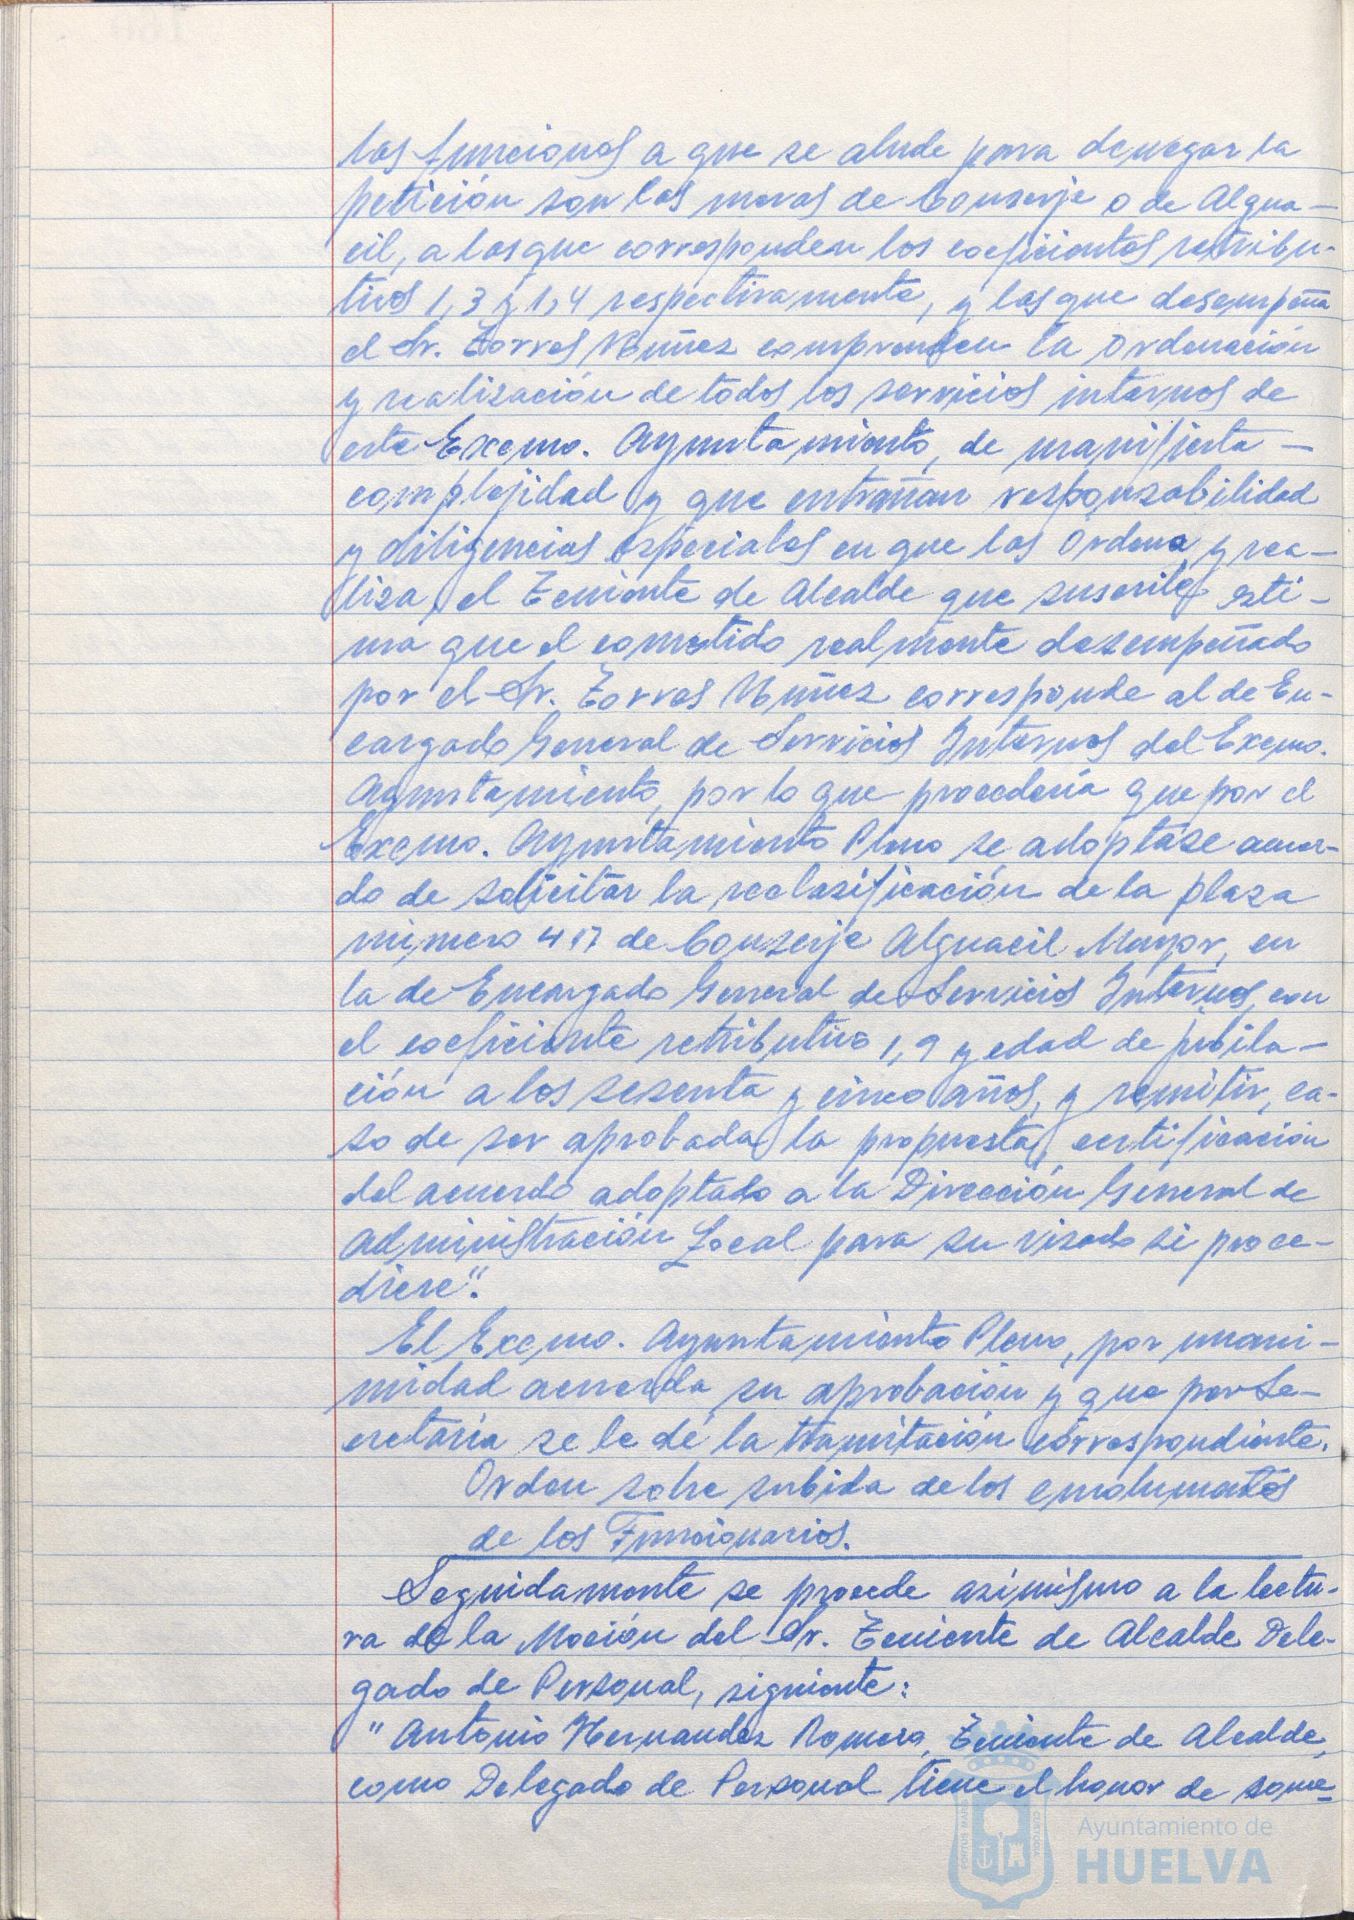 las funciones a que se alude para denegar la
petición son las meras de Conserje o de Algua-
cil, a las que corresponden los coeficientes retribu-
tivos 1,3 y 1,4 respectivamente, y las que desempeña
el Sr. Torres Núñez comprenden la ordenación
y realización de todos los servicios internos de
este Excmo. Ayuntamiento, de manifiesta -
complejidad y que entrañan responsabilidad
y diligencias especiales en que las ordena y rea-
liza, el Teniente de Alcalde que suscribe esti-
ma que el cometido realmente desempeñado
por el Sr. Torres Núñez corresponde al de En-
cargado General de Servicios Internos del Excmo.
Ayuntamiento, por lo que procedería que por el
Excmo. Ayuntamiento Pleno se adoptase acuer-
do de solicitar la reclasificación de la plaza
número 417 de Conserje Alguacil Mayor, en
la de Encargado General de Servicios Internos, con
el coeficiente retributivo 1,9 y edad de jubila-
ción a los sesenta y cinco años, y remitir, ca-
so de ser aprobada la propuesta, certificación
del acuerdo adoptado a la Dirección General de
Administración Local para su visado si proce-
diere".
El Excmo. Ayuntamiento Pleno, por unani-
midad acuerda su aprobación y que por Se-
cretaría se le dé la tramitación correspondiente.
Orden sobre subida de los emolumentos
de los Funcionarios.
Seguidamente se procede asimismo a la lectu-
ra de la Moción del Sr. Teniente de Alcalde Dele-
gado de Personal, siguiente:
" Antonio Hernandez Romero, Teniente de Alcalde,
como Delegado de Personal tiene el honor de some-
Ayuntamiento de
HUELVA